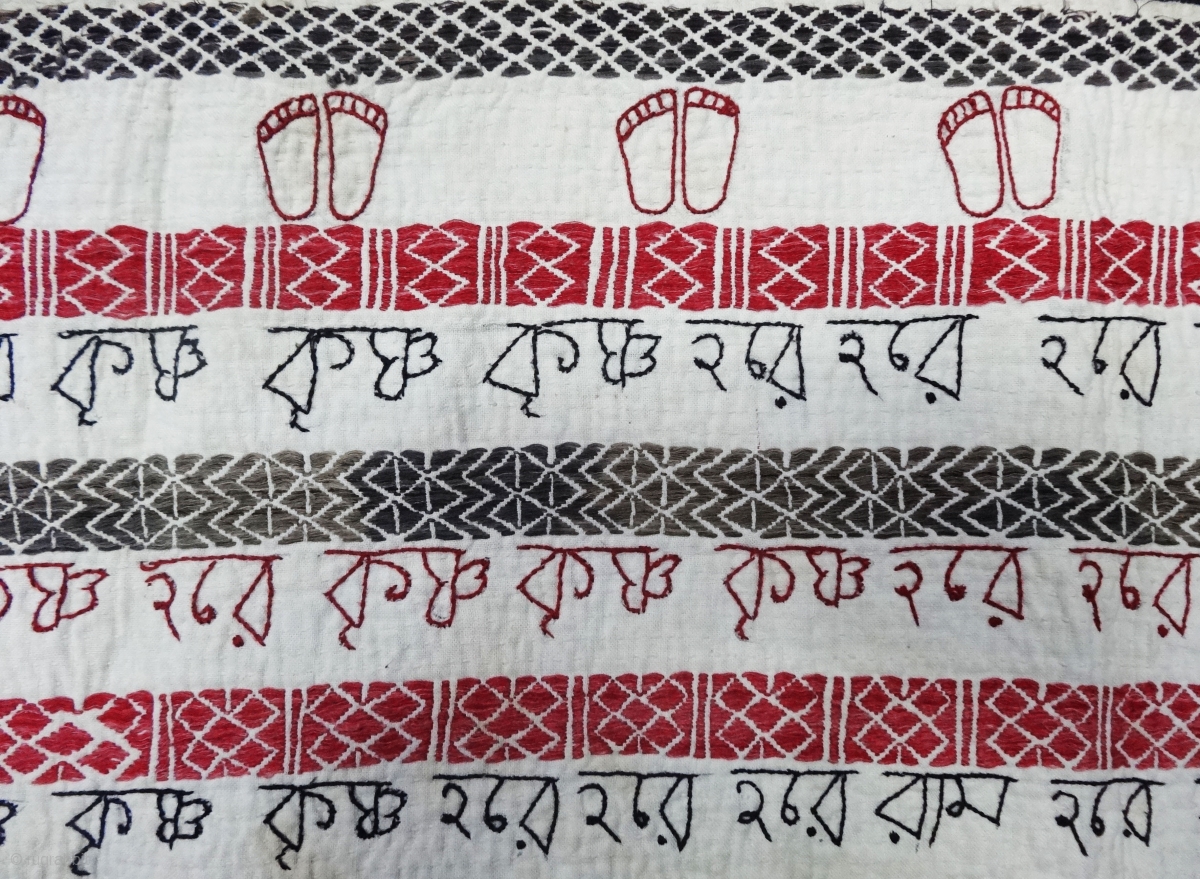 কৃষ্ণ কৃষ্ণ কৃষ্ণ হরে হরে হরে
কৃষ্ণ হরে কৃষ্ণ কৃষ্ণ কৃষ্ণ হরে হরে
কৃষ্ণ কৃষ্ণ হরে হরে হরে রাম হরে